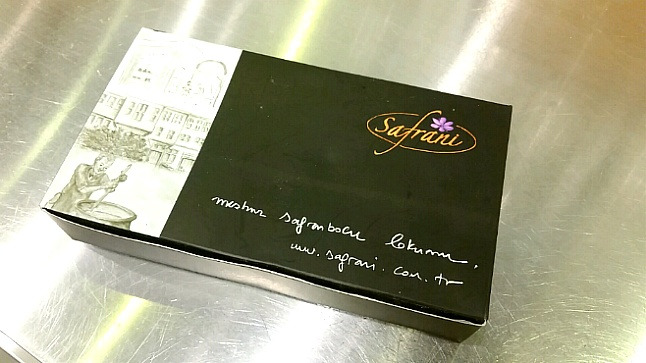 Safrani
meşhur safranbolu lokumu,
www.safrani.com.tr